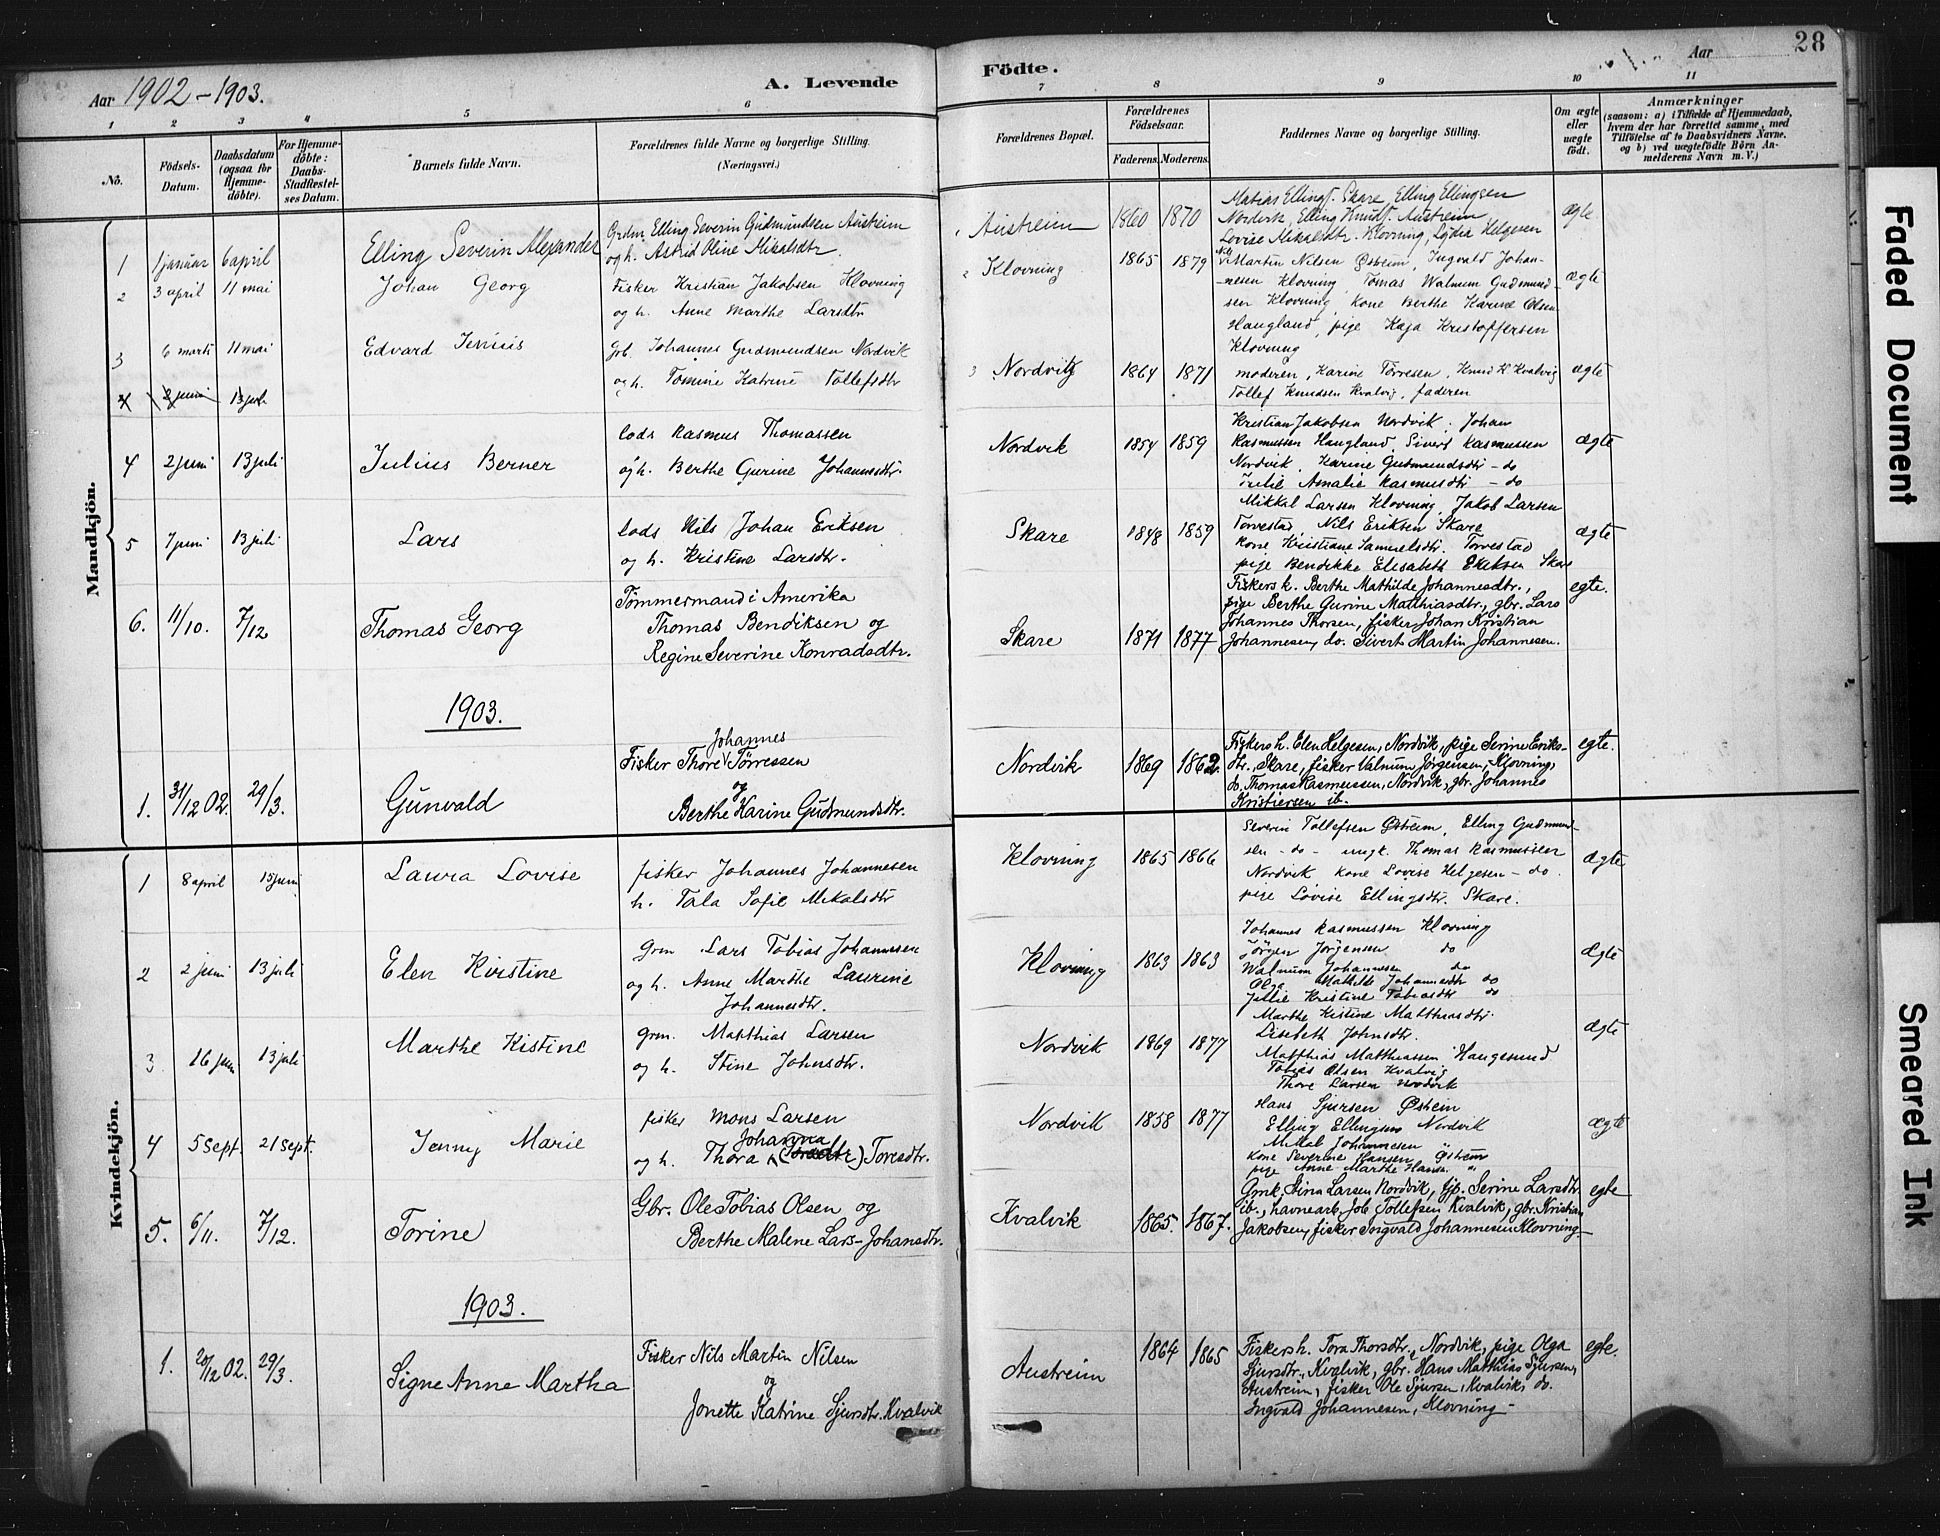 Aar 1902-1903.
A. Levende
Födte.
Aar
28
1 2 3 4 5 6 7 8 9 10 11
No.
Födsels-
Datum.
Daabsdatum
(ogsaa for
Hjemme-
döbte).
For Hjemme-
döbte:
Daabs-
Stadfæstel-
ses Datum.
Barnets fulde Navn.
Forældrenes fulde Navne og borgerlige Stilling.
(Næringsvei.)
Forældrenes Bopæl.
Forældrenes
Födselsaar.
Faderens. Moderens.
Faddernes Navne og borgerlige Stilling.
Om ægte
eller
uægte
födt.
Anmærkninger
(saasom: a) i Tilfælde af Hjemmedaab,
hvem der har forrettet samme, med
Tilföielse af to Daabsvidners Navne,
og b) ved uægtefödte Börn An-
melderens Navn m. V.)
Mandkjön.
1 1 januar 6 april Elling Severin Alexander
Grdm Elling Severin Gudmundsen Austreim
og h. Astrid Oline Mikalsdtr.
Austreim 1860 1870
Matias Ellings. Skare, Elling Ellingsen
Nordvik, Elling Knuds. Austreim
Lovise Mikalsdtr. Klovning, Lydia Helgesen
Ægte
2 3 april 11 mai Johan Georg
Fisker Kristian Jakobsen Klovning
og h. Anne Marthe Larsdtr
2 Klovning 1865 1879
Martin Nilsen Østeim, Ingvald Johan-
nesen Klovning, Tomas Walnum Gudmund-
sen Klovning, kone Berthe Karine Olsen
Haugland, pige Kaja Kristoffersen
Klovning
Ægte
3 6 marts 11 mai Edvard Jenius
Grb. Johannes Gudmundsen Nordvik
og h. Tomine Katrine Tollefsdtr
3 Nordvik 1864 1871
moderen, Karine Tørresen, Knud K Kvalvig
Tollef Knudsen Kvalvig, faderen
Ægte
4 2 juni 13 juli
4 2 juni 13 juli Julius Berner
lods Rasmus Thomassen
og h. Berthe Gurine Johannesdtr.
Nordvik 1854 1859
Kristian Jakobsen Nordvik, Johan
Rasmussen Haugland, Sivert Rasmussen
Nordvik, Karine Gudmundsdtr - do
Julie Amalie Rasmusdtr - do
Ægte
5 7 juni 13 juli Lars
lods Nils Johan Eriksen
og h. Kristine Larsdtr.
Skare 1848 1859
Mikkal Larsen Klovning, Jakob Larsen
Torvestad, Nils Eriksen Skare,
kone Kristiane Samuelsdtr. Torvestad
pige Bendikke Elisabeth Eriksen Skare
ægte
6. 11/10. 7/12 Thomas Georg
Tømmermand i Amerika
Thomas Bendiksen og
Regine Severine Konradsdtr.
Skare 1871 1877
Fiskers h. Berthe Mathilde Johannesdtr.,
pige Berthe Gurine Matthiasdtr., gbr. Lars
Johannes Thorsen, fisker Johan Kristian
Johannesen, do. Sivert Martin Johannesen.
egte.
1903.
1. 31/12 02. 29/3. Gunvald
Johannes
Fisker Thore Tørressen
og
Berthe Karine Gudmundsdtr.
Nordvik 1869 1862.
Fiskers h. Elen Helgesen, Nordvik, pige Serine Eriks-
dtr., Skare, fisker Valnum Jørgensen, Klovning,
do. Thomas Rasmussen, Nordvik, gbr. Johannes
Kristiersen ib.
egte.
Kvindekjön.
1 8 april 15 juni Laura Lovise
fisker Johannes Johannesen
h. Tala Sofie Mikalsdtr
Klovning 1865 1866
Severin Tollefsen Østeim, Elling Gudmund-
sen - do - ungk. Thomas Rasmussen
Nordvik kone Lovise Helgesen - do.
pige Lovise Ellingsdtr. Skare.
Ægte
2 2 juni 13 juli Elen Kristine
Grm Lars Tobias Johannesen
og h. Anne Marthe Laurine
Johannesdtr.
Klovning 1863 1863
Johannes Rasmussen Klovning
Jørgen Jørgensen do
Walnum Johannesen do
Olga Mathilde Johannesdtr do
Julie Kristine Tobiasdtr do
Ægte
3 16 juni 13 juli Marthe Kistine
Grm. Matthias Larsen
og h. Stine Johnsdtr.
Nordvik 1869 1877
Marthe Kistine Matthiasdtr.
Lisebeth Johnsdtr.
Matthias Matthiassen Haugesund
Tobias Olsen Kvalvig
Thore Larsen Nordvik
Ægte
4 5 sept. 21 sept. Jenny Marie
fisker Mons Larsen
Johanna
og h. Thora (Toresdtr) Toresdtr.
Nordvik 1858 1877
Hans Sjursen Østeim
Elling Ellingsen Nordvik
Mikal Johannesen
kone Severine Hansen Østeim
pige Anne Marthe Hansen "
Ægte
5. 6/11. 7/12. Torine
Gbr. Ole Tobias Olsen og
Berthe Malene Lars-Johansdtr.
Kvalvik 1865. 1867.
Gmk. Stina Larsen Nordvik, tjp. Serine Larsdtr.
ib., havnearb. Job Tollefsen Kvalvik, gbr. Kristian
Jakobsen, fisker Ingvald Johannesen Klovning.
egte
1903.
1. 20/12 02. 29/3. Signe Anne Martha
Fisker Nils Martin Nilsen
og
Jonette Katrine Sjursdtr. Kvalvik
Austreim 1864 1865
Fiskersh. Tora Thorsdtr., Nordvik, pige Olga
Sjursdtr., Kvalvik, gbr. Hans Matthias Sjursen,
Austreim, fisker Ole Sjursen, Kvalvik, do.
Ingvald Johannesen, Klovning-
egte.
Faded Document
Smeared Ink